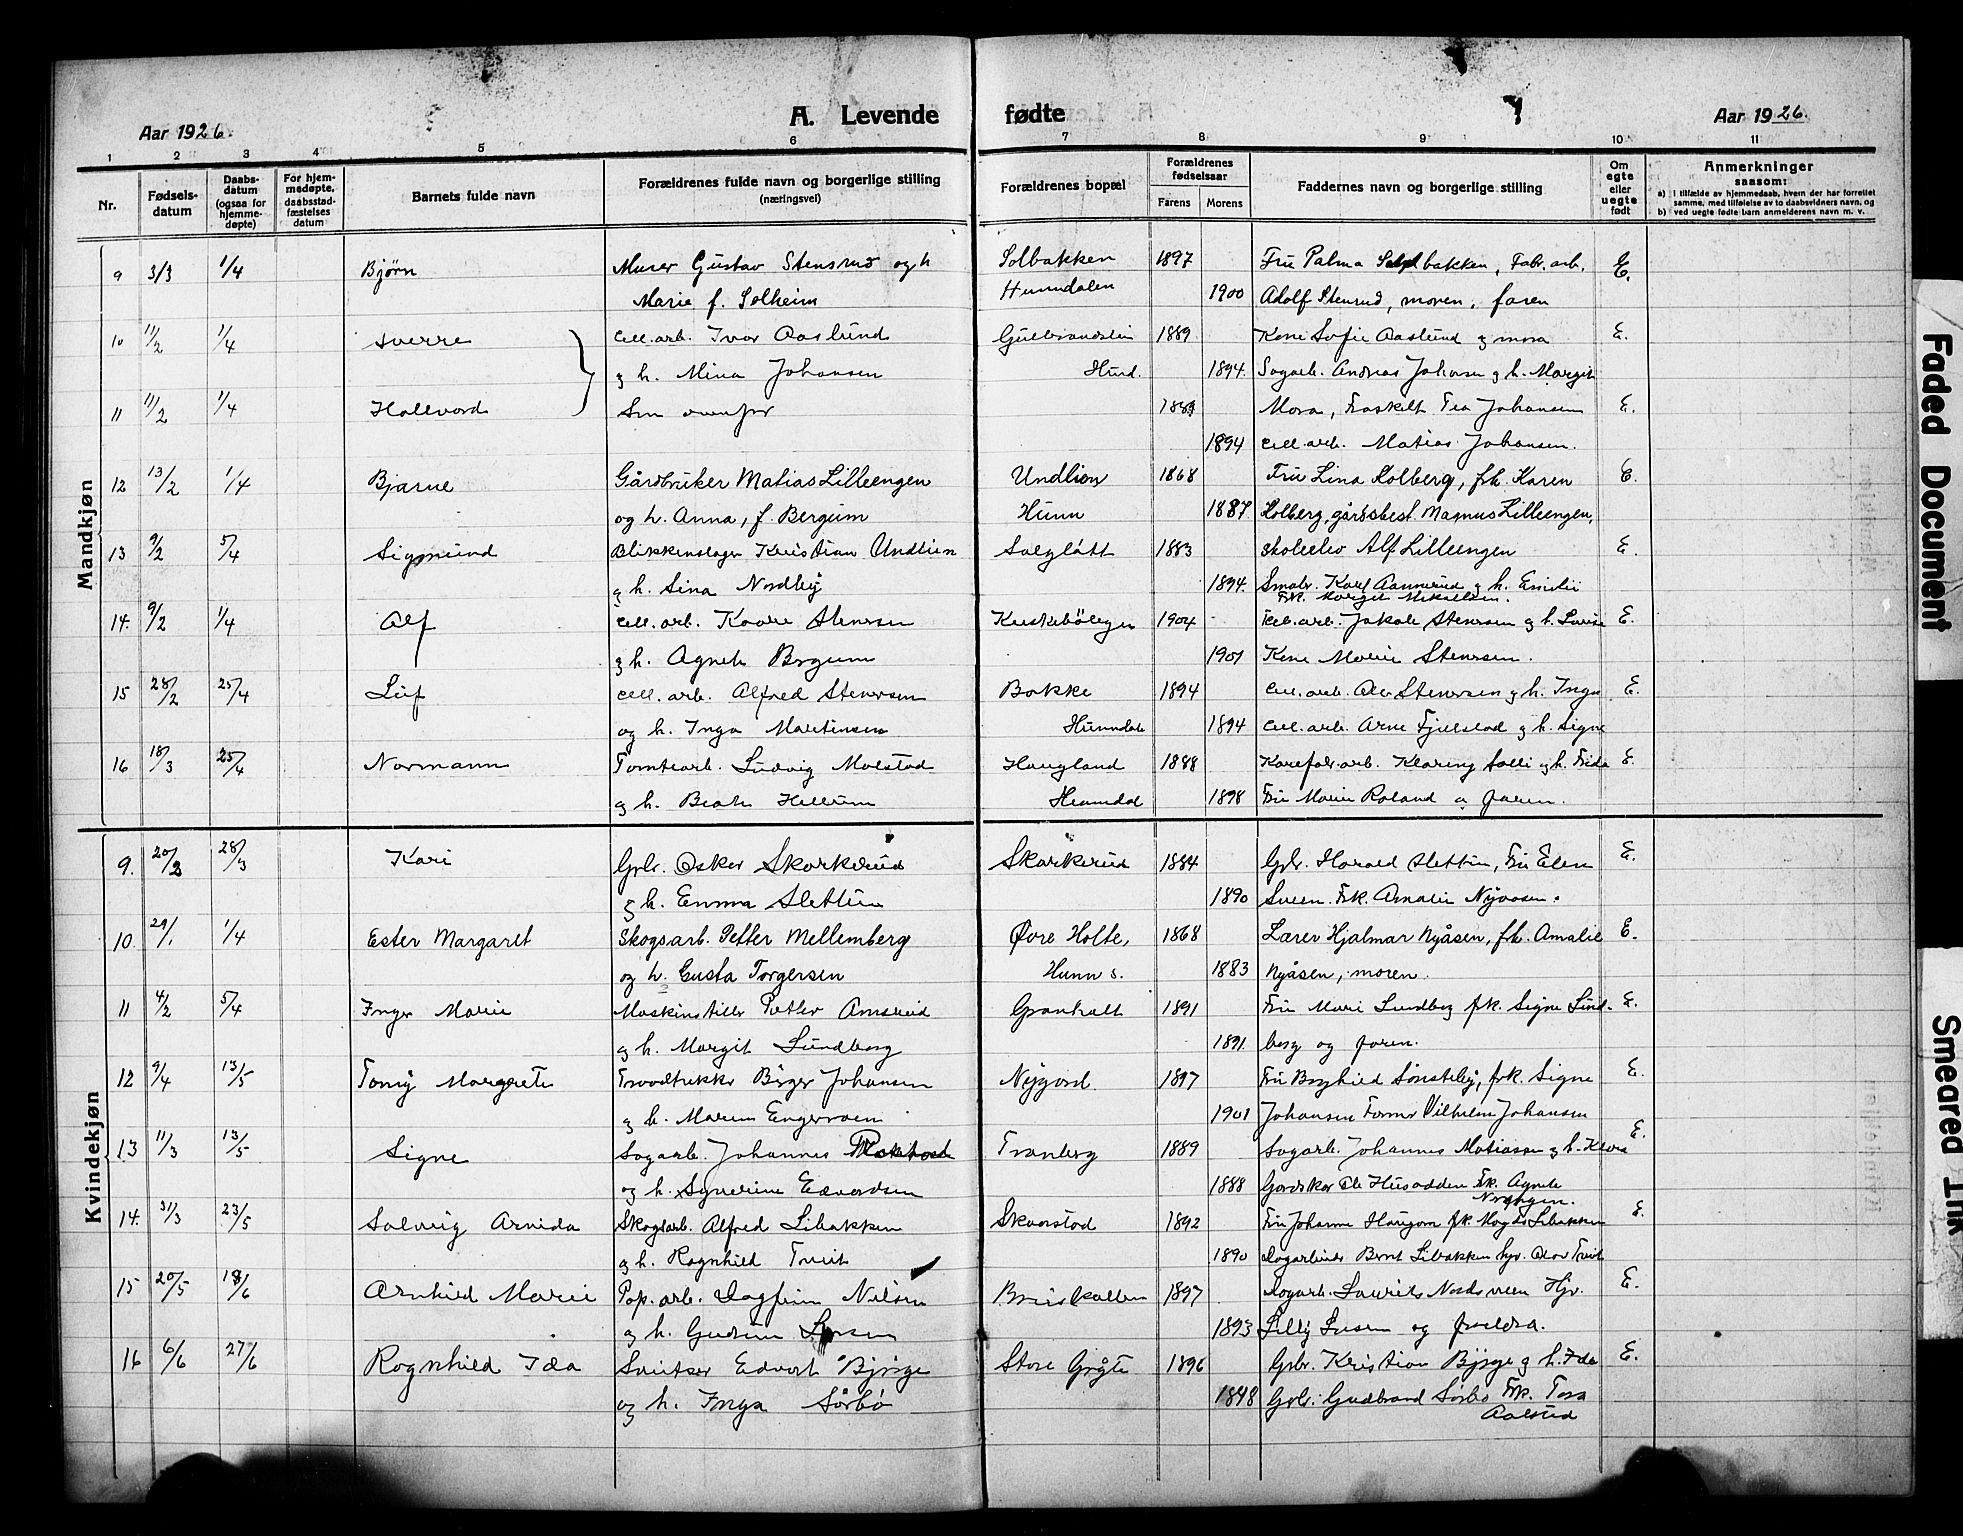 Aar 1926.
A. Levende fødte
Aar 1926.
1 2 3 4 5 6 7 8 9 10 11
Nr.
Fødsels-
datum
Daabs-
datum
(ogsaa for
hjemme-
døpte)
For hjem-
medøpte,
daabsstad-
fæstelses
datum
Barnets fulde navn
Forældrenes fulde navn og borgerlige stilling
(næringsvei)
Forældrenes bopæl
Forældrenes
fødselsaar
Farens Morens
Faddernes navn og borgerlige stilling
Om
egte
eller
uegte
født
Anmerkninger
saasom:
a) i tilfælde av hjemmedaab, hvem der har forrettet
samme, med tilføielse av to daabsvidners navn, og
b) ved uegte fødte barn anmelderens navn m. v.
Mandkjøn
9 3/3 1/4 Bjørn Murer Gustav Stensrud og h Solbakken 1897 Fru Palma Solbakken, Fabr. arb. E.
Marie f. Solheim Hunndalen 1900 Adolf Stensrud, moren, faren
10 11/2 1/4 Sverre Cell. arb. Ivar Aaslund 1889 Kone Sofie Aaslund g mora E.
g h. Mina Johansen Hund. 1894 Sagarb. Andreas Johansen g h. Margit
11 11/2 1/4 Hallvard Som ovenfor Mora, Fraskilt Tea Johansen E.
1894 Cell. arb. Matias Johansen.
12 13/2 1/4 Bjarne Gårdbruker Matias Lilleengen Undlien 1868 Fru Lina Kolberg, frk. Karen E.
og h. Anna, f. Bergum Hunn 1887 Kolberg, gårdsbest. Magnus Lilleengen,
13 9/2 5/4 Sigmund Blikkenslager Kristian Undlien Solglått 1883 skoleelev Alf Lilleengen E.
g h. Sina Nordby 1894. Smabr. Karl Aannerud g h. Emilie
Frk. Margit Mikalsen.
14. 9/2 1/4 Alf Cell. arb. Kaare Stensen 1904 Cell. arb. Jakob Stensen g h. Lovise E.
g h. Agnete Bergum 1901 Kone Marie Stensen.
15 28/2 25/4 Leif Cell. arb. Alfred Stenersen Bakke 1894 Cell. arb. Stenersen g h. Inga E.
og h. Inga Martinsen Hunndal 1894 Cell. arb. Arne Fjelstad g h. Signe
16 18/3 25/4 Normann Tomtearb. Ludvig Molstad Haugland 1888 g h. Frida E.
g h. Beate Hellum Hunndal 1898 Fru Marie Roland g faren.
Kvindekjøn
9. 20/2 28/3 Kari Gbr. Oskar Skarkerud Skarkerud 1884 Gbr. Harald Slettum, Fru Elen E.
g h. Emma Slettum 1890 Sveen. Frk. Amalie Nyaasen.
10. 29/1 1/4 Ester Margaret Skogsarb. Petter Mellemberg Øvre Holte, 1868 Lærer Hjalmar Nyåsen, frk. Amalie E.
og h. Gusta Torgersen Hunn s. 1883 Nyåsen, moren.
11 4/2 5/4 Inger Marie Maskinstiller Petter Amsrud Granholt 1891 Fru Marie Lundberg frk. Signe Lund- E.
g h. Margit Lundberg 1891. berg og faren.
12 9/4 13/5 Tony Margrete Traadtrekker Birger Johansen Nygard. 1897 Fru Borghild Sønsteby, frk. Signe E.
g h. Maren Engersveen 1901 Johansen Former Vilhelm Johansen
13 11/3 13/5 Signe Sagarb. Johannes Tranberg 1889 Sagarb. Johannes Matiassen g h. Klara E.
og h. Synerine Edvardsen 1888 Gardsker Ole Husodden Frk. Agnete
Nordengen.
14. 31/3 23/5 Solveig Arnida Skogsarb. Alfred Libakken Skaarstad 1892 Fru Johanne Haugom frk. Magda Libakken E.
g h. Ragnhild Tveit 1890 Sagarbeider Bernt Libakken hjv. Olav Tveit
15 20/5 /6 Arnhild Marie Pap. arb. Dagfinn Nilsen Breiskallen 1897 Sagarb. Laurits Nordsveen Hjv. E.
g h. Gudrun Larsen 1893 Lilly Larsen og foreldra.
16 6/6 27/6 Ragnhild Ida Sveitser Edvart Bjørge Store Gryte 1896 Gbr. Kristian Bjørge g h. Ida E.
og h. Inga Sørbø 1898 Gbr. Gudbrand Sørbø Frk. Tora
Aalstad
Faded Document
Smeared Ink